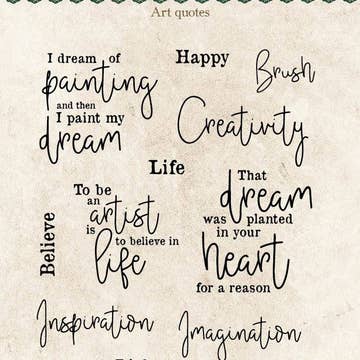 Art quotes
I dream of
painting
and then
I paint my
dream
Happy
Brush
Creativity
Life
To be
an
artist
is
to believe in
life
That
dream
was planted
in your
heart
for a reason
Believe
Inspiration
Imagination